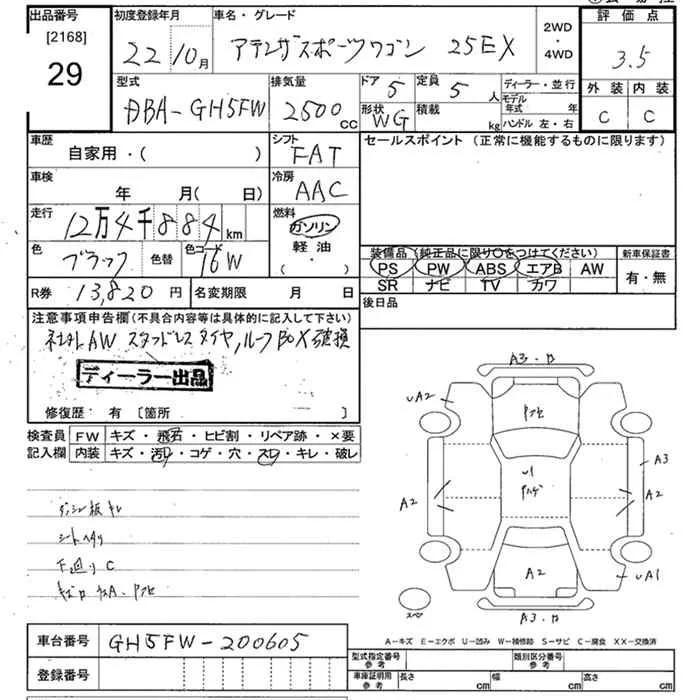 出品番号 初度登録年月 車名・グレード 2WD・4WD 評価点
[2168]
29 22 10月 アテンザスポーツワゴン 25EX 3.5
型式 排気量 ドア 5 定員 5人 ディーラー・並行 外装 内装
DBA-GH5FW 2500cc 形状 WG 積載 kg モデル年式 年 ハンドル 左・右 C C
車歴 シフト セールスポイント (正常に機能するものに限ります)
自家用・( ) FAT
車検 冷房
年 月( 日) AAC
走行 燃料
12万4千884km ガソリン
軽油
色 色替 色コード ( ・ ) 装備品 (純正品に限り〇をつけてください) 新車保証書
ブラック 16W PS PW ABS エアB AW 有・無
SR ナビ TV カワ
R券 13,820円 名変期限 月 日 後日品
注意事項申告欄(不具合内容等は具体的に記入して下さい)
社外AW スタッドレスタイヤ, ルーフBOX破損
ディーラー出品
修復歴: 有 〔箇所 〕
検査員 FW キズ・飛石・ヒビ割・リペア跡・×要
記入欄 内装 キズ・汚れ・コゲ・穴・スレ・キレ・破レ
シートヘタリ
下廻りC
A3・B
UA2
A3
U1
A2 A2
A2
UA1
スペア
A3・B
A-キズ E-エクボ U-凹み W-補修跡 S-サビ C-腐食 XX-交換済
車台番号 GH5FW-200605 型式指定番号 参考 類別区分番号 参考
登録番号 車庫証明用 参考 長さ cm 幅 cm 高さ cm